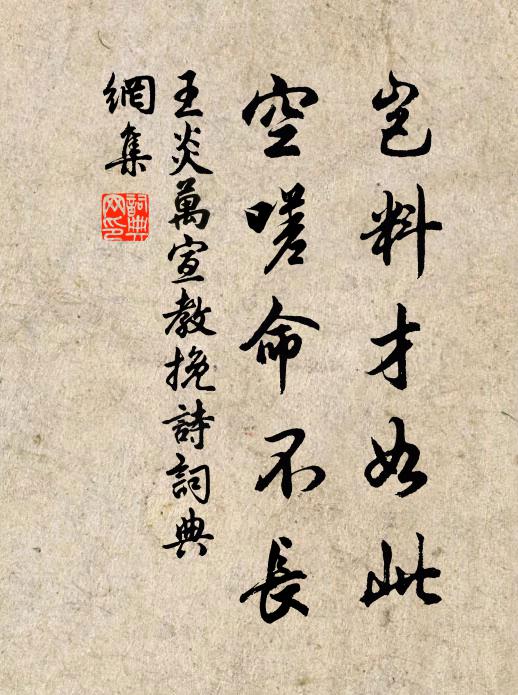 豈料才如此
空嗟命不長
王炎萬宣教挽詩詞典
網集
詞典網印